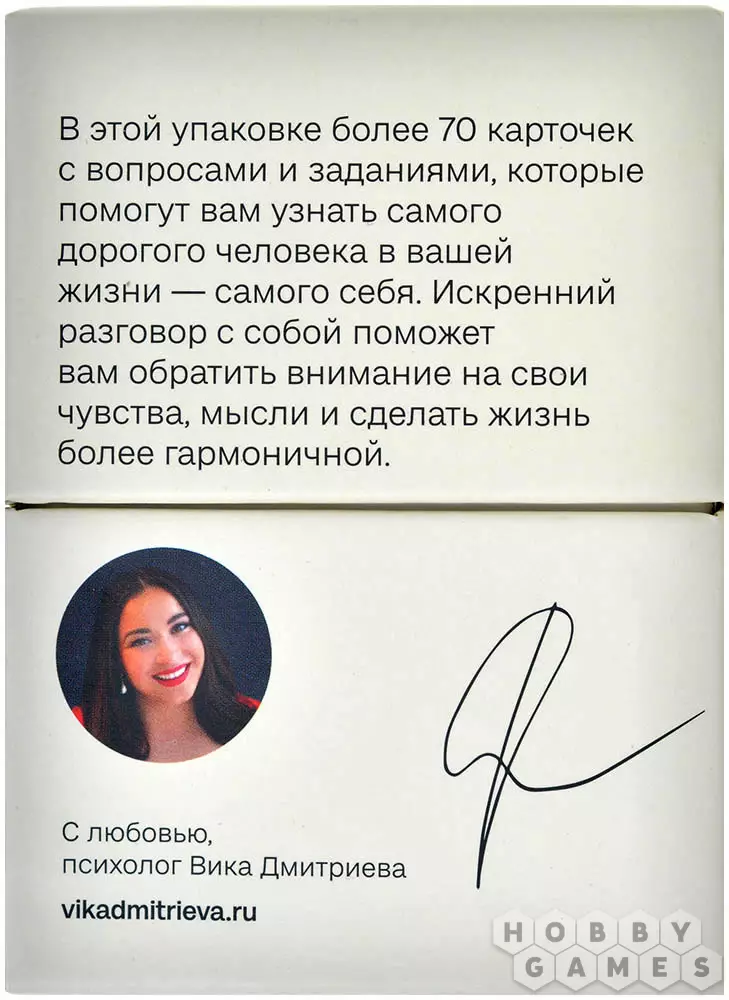 В этой упаковке более 70 карточек
с вопросами и заданиями, которые
помогут вам узнать самого
дорогого человека в вашей
жизни — самого себя. Искренний
разговор с собой поможет
вам обратить внимание на свои
чувства, мысли и сделать жизнь
более гармоничной.
С любовью,
психолог Вика Дмитриева
vikadmitrieva.ru
HOBBY
GAMES